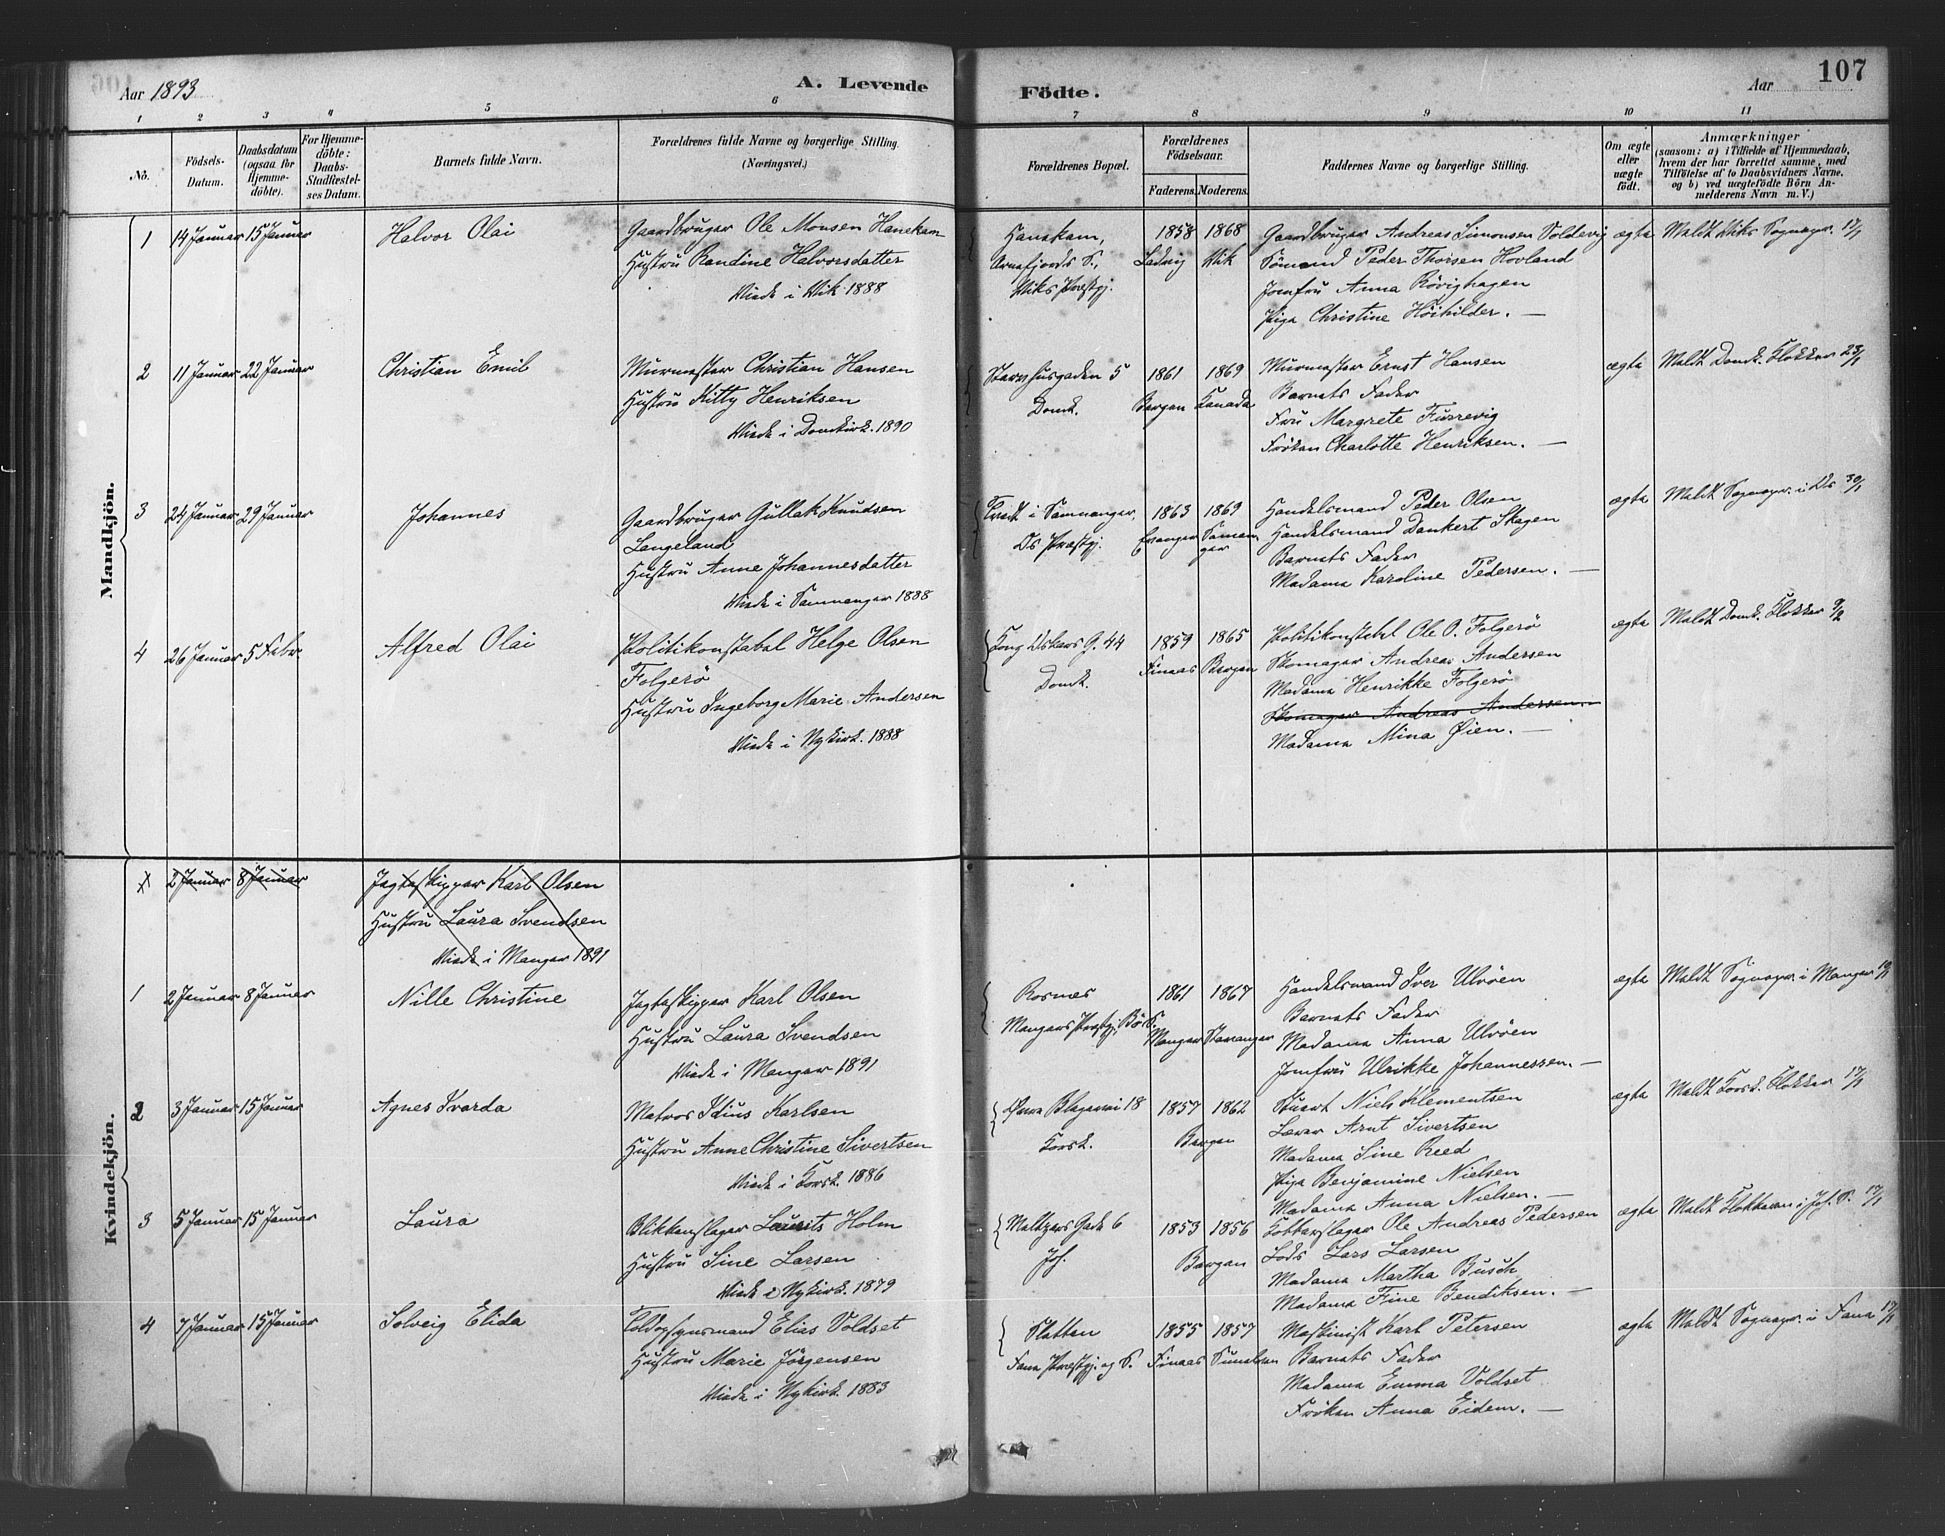 Aar 1893
A. Levende
Födte.
Aar
107
1 2 3 4 5 6 7 8 9 10 11
No.
Födsels-Datum.
Daabsdatum (ogsaa for Hjemme-döbte).
For Hjemme-döbte: Daabs-Stadfæstel-ses Datum.
Barnets fulde Navn.
Forældrenes fulde Navne og borgerlige Stilling. (Næringsvei.)
Forældrenes Bopæl.
Forældrenes Födselsaar.
Faderens. Moderens.
Faddernes Navne og borgerlige Stilling.
Om ægte eller uægte födt.
Anmærkninger
(saasom: a) i Tilfælde af Hjemmedaab, hvem der har forrettet samme, med Tilföielse af to Daabsvidners Navne, og b) ved uægtefödte Börn An-melderens Navn m. V.)
Mandkjön.
1 14 Januar 15 Januar
Halvor Olai
Gaardbruger Ole Monsen Hanekam
Hustru Randine Halvorsdatter
Viede i Vik 1888
Hanekam,
Arnefjords S.,
Viks Præstgj.
1858 1868
Ladvig Vik
Gaardbruger Andreas Simonsen Voldevig
Sömand Peder Thorsen Hovland
Jomfru Anna Rövighagen
Pige Christine Höihilder. —
ægte
Meldt Viks Sognepr. 17/1
2 11 Januar 22 Januar
Christian Emil
Murmester Christian Hansen
Hustru Kitty Henriksen
Viede i Domkirk. 1890
5
Domk.
1861 1869
Bergen Kanada
Murmester Ernst Hansen
Barnets Fader
Fru Margrete Furrevig
Fröken Charlotte Henriksen. —
ægte
Meldt Domk. Klokker 23/1
3 24 Januar 29 Januar
Johannes
Gaardbruger Gullak Knudsen
Langeland
Hustru Anne Johannesdatter
Viede i Samnanger 1888
Tveit i Samnanger,
Os Præstgj.
1863 1869
Evanger Samnanger
Handelsmand Peder Olsen
Handelsmand Dankert Skagen
Barnets Fader
Madame Karoline Pedersen. —
ægte
Meldt Sognepr. i Os 30/1
4 26 Januar 5 Febr.
Alfred Olai
Politikonstabel Helge Olsen
Folgerö
Hustru Ingeborg Marie Andersen
Viede i Nykirk. 1888
Kong Oskars G. 44
Domk.
1859 1865
Finaas Bergen
Politikonstabel Ole O. Folgerö
Skomager Andreas Andersen
Madame Henrikke Folgerö
Skomager Andreas Andersen.
Madame Mina Øien. —
ægte
Meldt Domk. Klokker 9/2
Kvindekjön.
1 2 Januar 8 Januar
Jagteskipper Karl Olsen
Hustru Laura Svendsen
Viede i Manger 1891
1 2 Januar 8 Januar
Nille Christine
Jagteskipper Karl Olsen
Hustru Laura Svendsen
Viede i Manger 1891
Rosnes
Mangers Præstgj., Bö S.
1861 1867
Manger Stavanger
Handelsmand Iver Ulvöen
Barnets Fader
Madame Anna Ulvöen
Jomfru Ulrikke Johannessen. —
ægte
Meldt Sognepr. i Manger
2 3 Januar 15 Januar
Agnes Svarda
Matros Idius Karlsen
Hustru Anne Christine Sivertsen
Viede i Korsk. 1886
18
Korsk.
1857 1862
Bergen
Stuert Niels Klementsen
Lærer Arnt Sivertsen
Madame Sine Reed
Pige Benjamine Nielsen
Madame Anna Nielsen. —
ægte
Meldt Korsk. Klokker 17/1
3 5 Januar 15 Januar
Laura
Blikkenslager Laurits Holm
Hustru Sine Larsen
Viede i Nykirk. 1879
Meltzers Gade 6
Joh.
1853 1856
Bergen
Kobberslager Ole Andreas Pedersen
Lods Lars Larsen
Madame Martha Busch
Madame Fine Bendiksen. —
ægte
Meldt Klokkeren i Joh. S. 17/1
4 7 Januar 15 Januar
Solveig Elida
Toldopsynsmand Elias Voldset
Hustru Marie Jörgensen
Viede i Nykirk. 1883
Sletten
Fane Præstgj. og S.
1855 1857
Finaas
Maskinist Karl Petersen
Barnets Fader
Madame Emma Voldset
Fröken Anna Eidem. —
ægte
Meldt Sognepr. i Fane 17/1